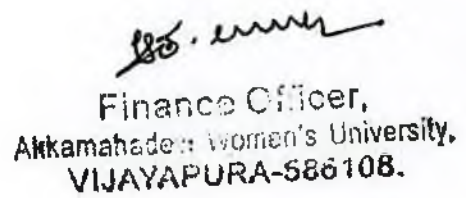 Finance Officer,
Akkamahadevi Women's University,
VIJAYAPURA-586108.